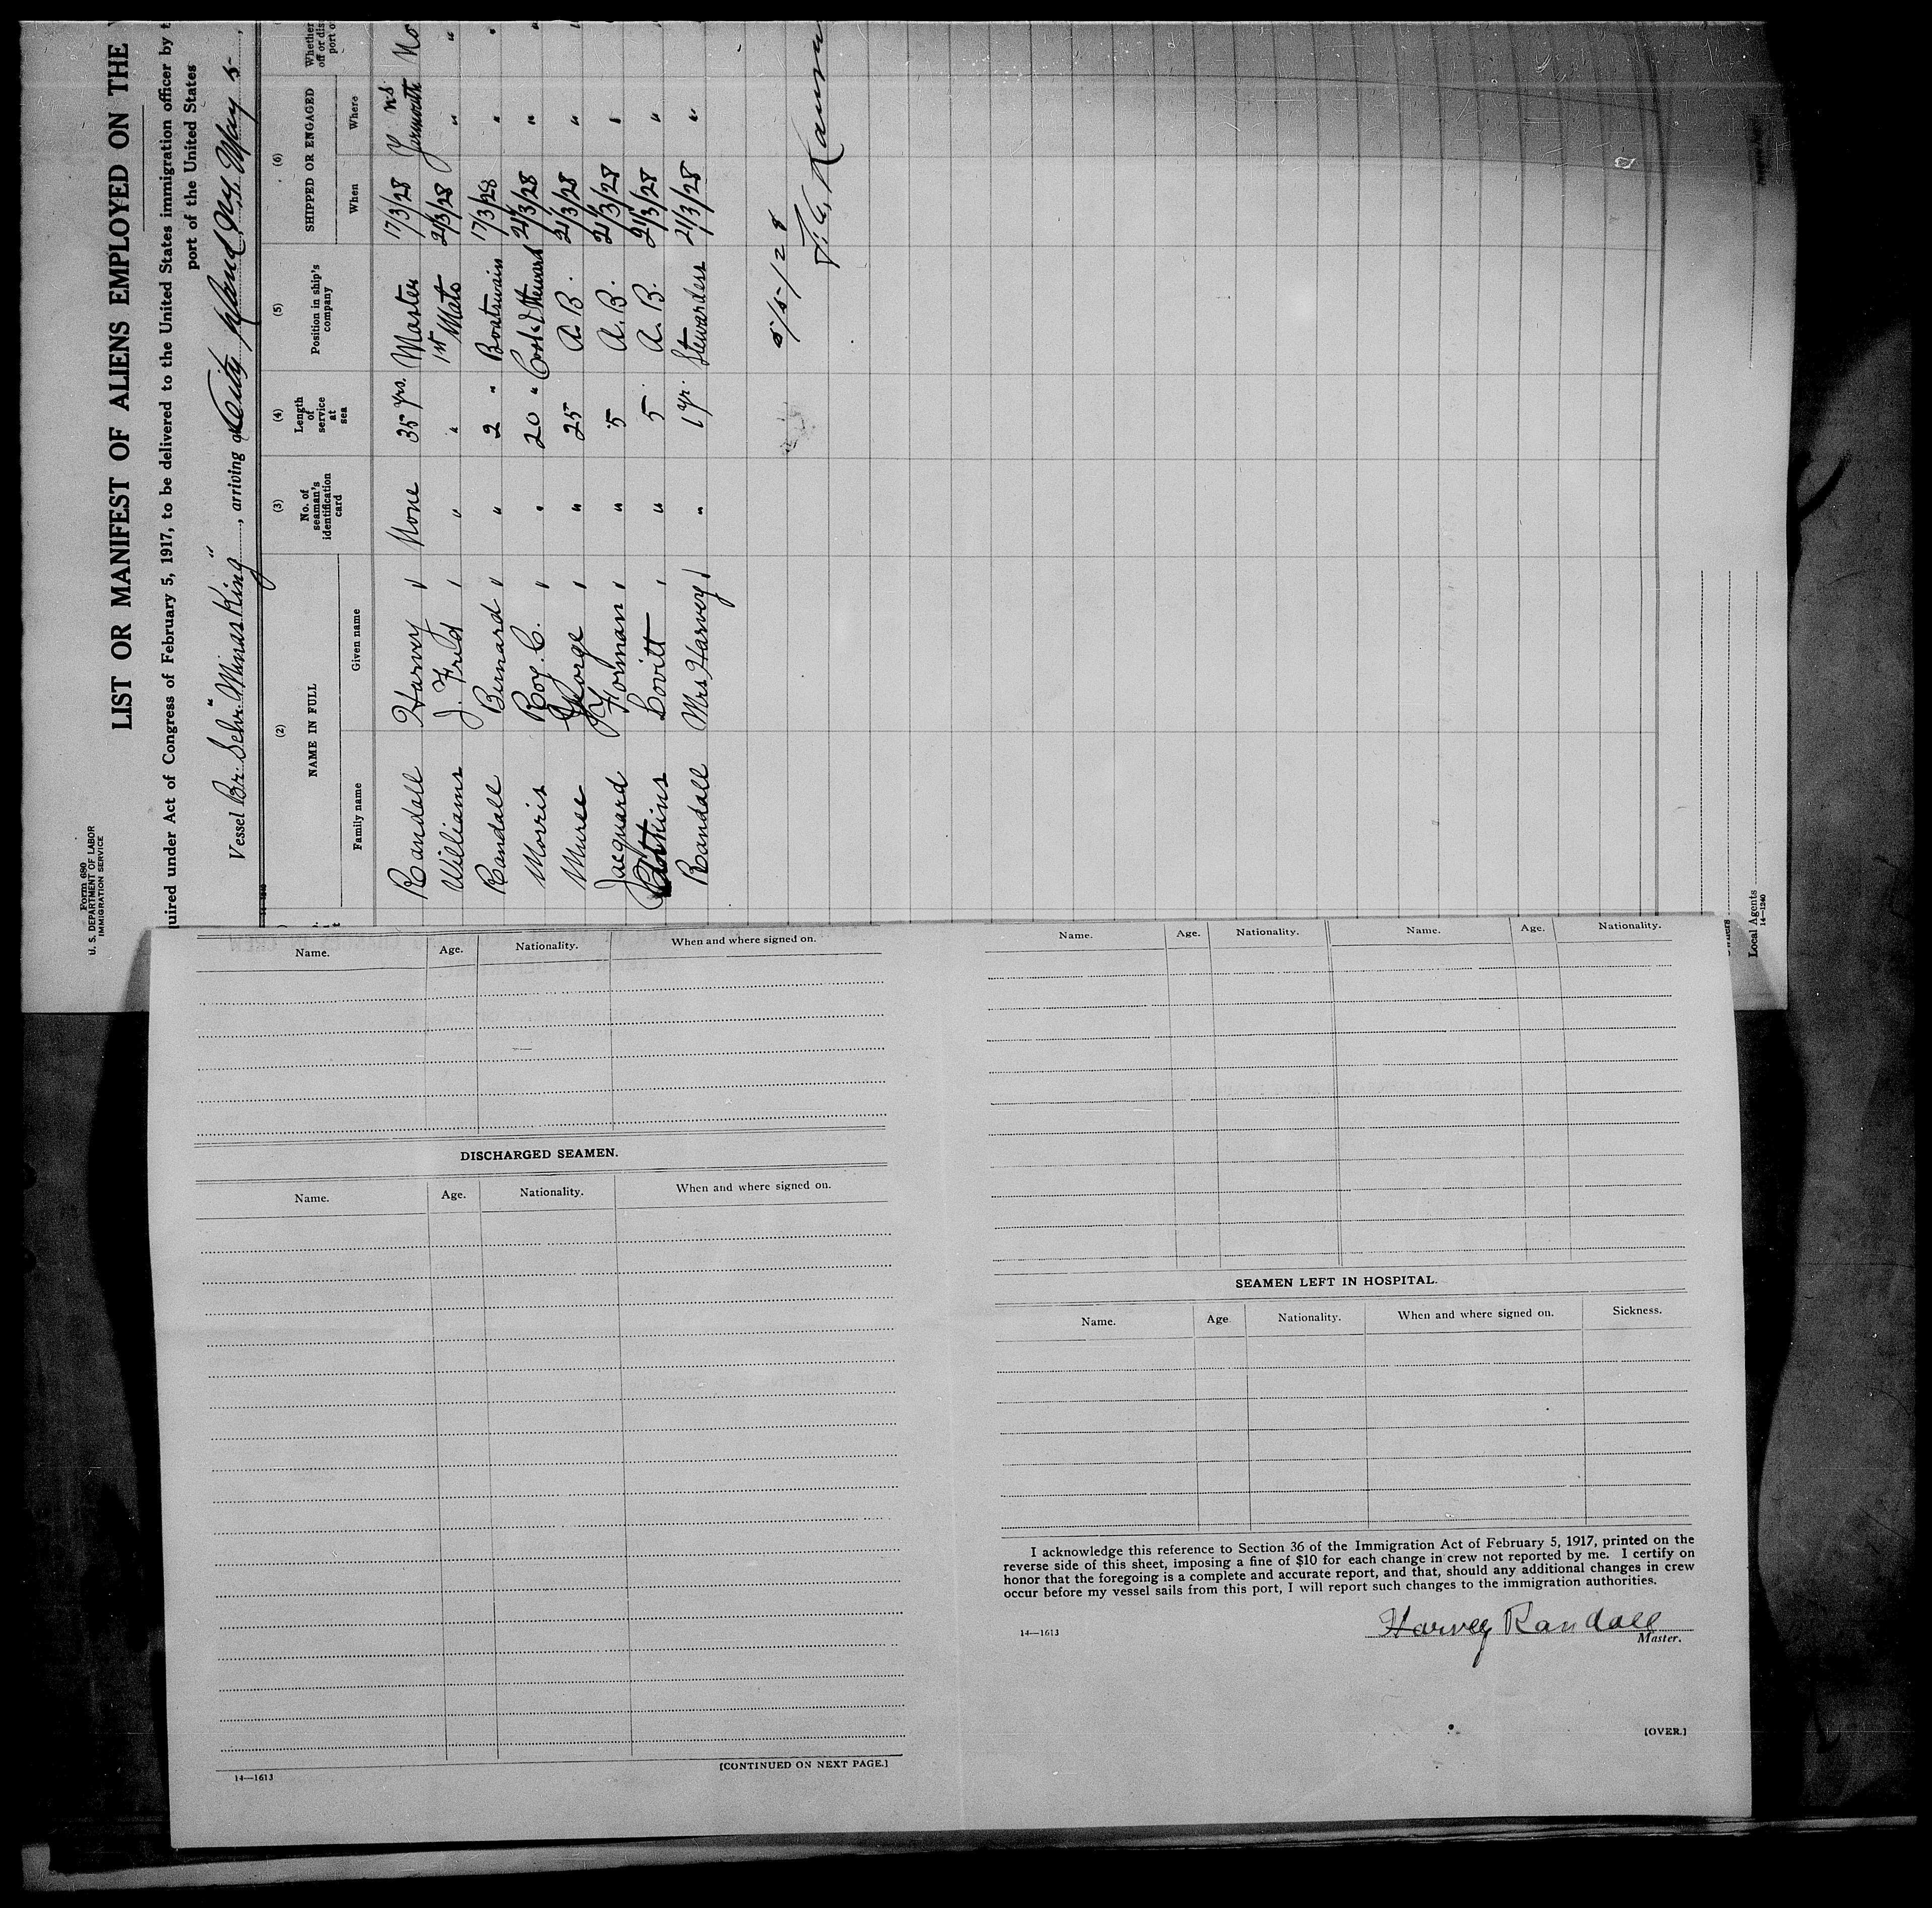 Form 680
U. S. DEPARTMENT OF LABOR
IMMIGRATION SERVICE
LIST OR MANIFEST OF ALIENS EMPLOYED ON THE
uired under Act of Congress of February 5, 1917, to be delivered to the United States immigration officer by t
port of the United States
Vessel Br. Schr. "Minas King", arriving at City Island N.Y. May 5
(2) (3) (4) (5) (6)
NAME IN FULL No. of seaman's identification card Length of service at sea Position in ship's company SHIPPED OR ENGAGED Whether
off or dis
port o
Family name Given name When Where
Randall Harvey None 35 yrs. Master 17/3/28 Yarmouth NS No
Williams J. Fred " " 1st Mate 21/3/28 " "
Randall Bernard " 2 " Boatswain 17/3/28 " "
Morris Roy. C. " 20 " Cook & Steward 21/3/28 " "
Muree George " 25 A. B. 21/3/28 " "
Jacquard Forman " 5 A. B. 21/3/28 "
Lovitt " 5 A. B. 21/3/28 "
Randall Mrs Harvey " 1 yr. Stewardess 21/3/28 "
5/5/28
Local Agents
14—1240
Name. Age. Nationality. When and where signed on.
DISCHARGED SEAMEN.
Name. Age. Nationality. When and where signed on.
14—1613
[CONTINUED ON NEXT PAGE.]
Name. Age. Nationality. Name. Age. Nationality.
SEAMEN LEFT IN HOSPITAL.
Name. Age. Nationality. When and where signed on. Sickness.
I acknowledge this reference to Section 36 of the Immigration Act of February 5, 1917, printed on the
reverse side of this sheet, imposing a fine of $10 for each change in crew not reported by me. I certify on
honor that the foregoing is a complete and accurate report, and that, should any additional changes in crew
occur before my vessel sails from this port, I will report such changes to the immigration authorities.
Harvey Randall
14—1613
Master.
[OVER.]